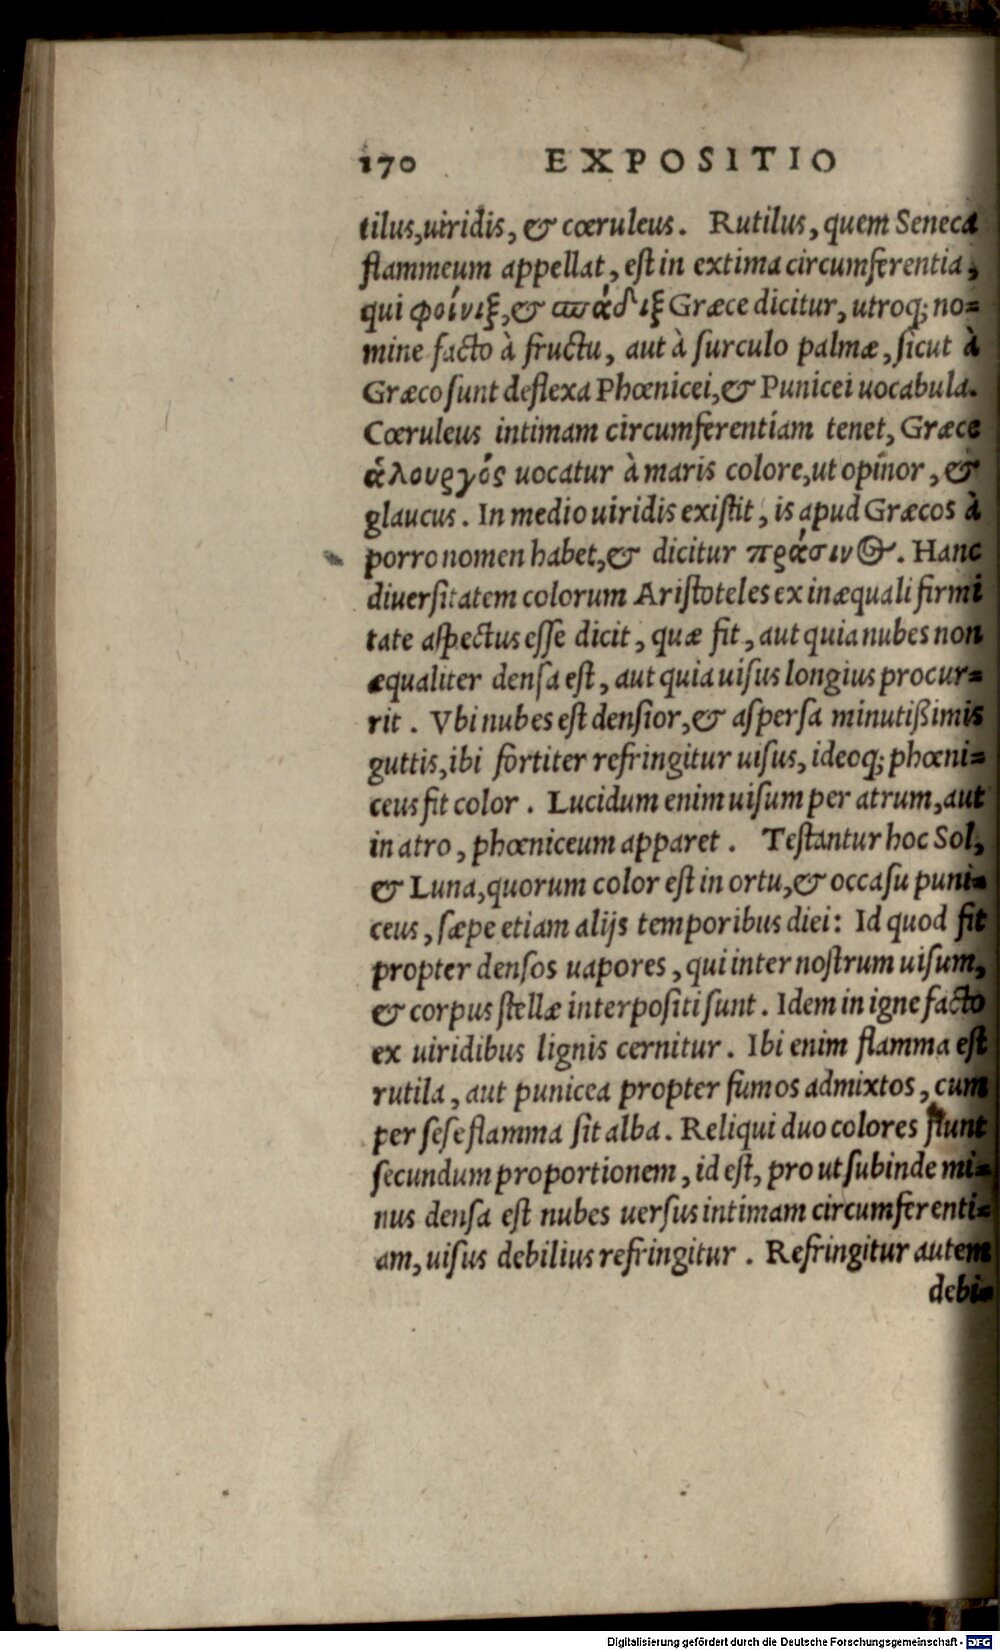 170 EXPOSITIO
tilus, uiridis, & cœruleus. Rutilus, quem Seneca
flammeum appellat, est in extima circumferentia,
qui φοίνιξ, & σπάδιξ Græce dicitur, utroq; no=
mine facto à fructu, aut à surculo palmæ, sicut à
Græco sunt deflexa Phœnicei, & Punicei uocabula.
Cœruleus intimam circumferentiam tenet, Græce
ἁλουργός uocatur à maris colore, ut opinor, &
glaucus. In medio uiridis existit, is apud Græcos à
porro nomen habet, & dicitur πράσινος. Hanc
diuersitatem colorum Aristoteles ex inæquali firmi
tate aspectus esse dicit, quæ fit, aut quia nubes non
æqualiter densa est, aut quia uisus longius procur=
rit. Vbi nubes est densior, & aspersa minutißimis
guttis, ibi fortiter refringitur uisus, ideoq; phœni=
ceus fit color. Lucidum enim uisum per atrum, aut
in atro, phœniceum apparet. Testantur hoc Sol,
& Luna, quorum color est in ortu, & occasu puni=
ceus, sæpe etiam alijs temporibus diei: Id quod fit
propter densos uapores, qui inter nostrum uisum,
& corpus stellæ interpositi sunt. Idem in igne facto
ex uiridibus lignis cernitur. Ibi enim flamma est
rutila, aut punicea propter fumos admixtos, cum
per sese flamma sit alba. Reliqui duo colores fiunt
secundum proportionem, id est, pro ut subinde mi=
nus densa est nubes uersus intimam circumferenti=
am, uisus debilius refringitur. Refringitur autem
debi=
Digitalisierung gefördert durch die Deutsche Forschungsgemeinschaft - DFG